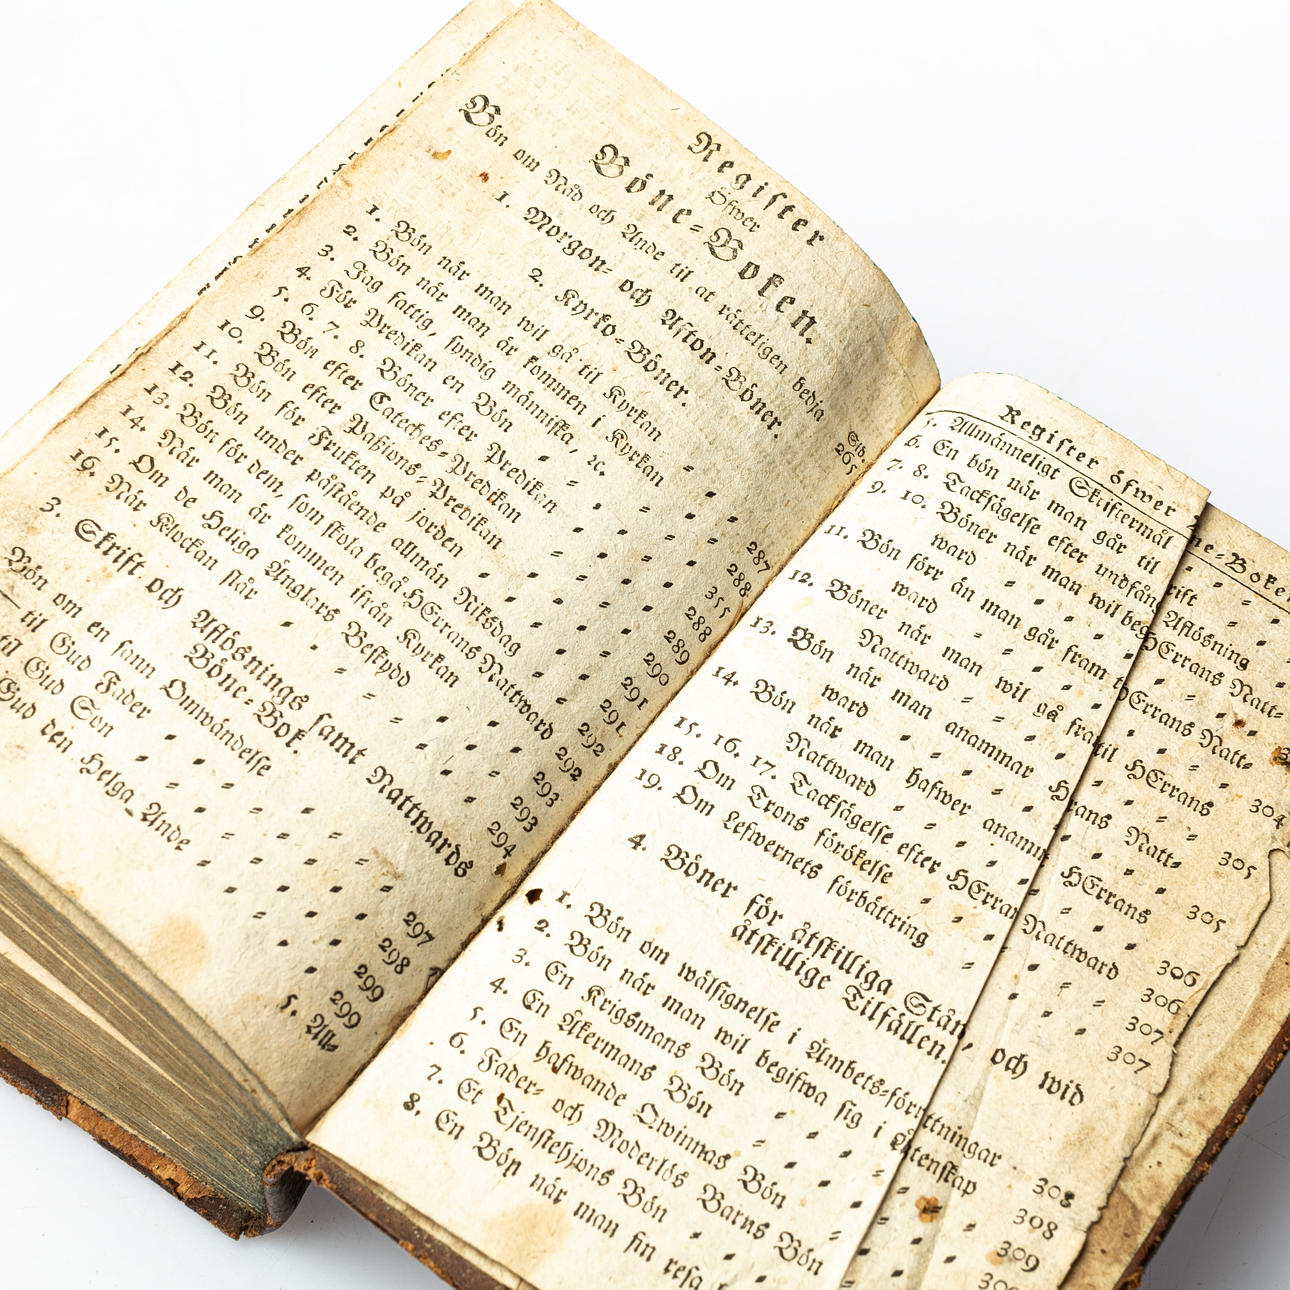 Register
Öfwer
Böne-Boken.
Bön om Nåd och Ande til at rätteligen bedja
Sid.
265
1. Morgon- och Afton-Böner.
2. Kyrko-Böner.
1. Bön når man wil gå til Kyrkan - - 287
2. Bön når man är kommen i Kyrkan - 288
3. Jag fattig, syndig människa, ꝛc. - - 355
4. För Predikan en Bön - - 288
5. 6. 7. 8. Böner efter Predikan - - 289
9. Bön efter Cateches-Predikan - - 290
10. Bön efter Paßions-Predikan - - 291
11. Bön för Frukten på jorden - - 291
12. Bön under påstående allmän Riksdag - 292
13. Bön för dem, som skola begå HErrans Nattward 292
14. När man är kommen ifrån Kyrkan - 293
15. Om de Heliga Änglars Beskydd - - 293
16. När Klockan slår - - 294
3. Skrift och Aflösnings samt Nattwards
Böne-Bok.
Bön om en sann Omwändelse - - 297
til Gud Fader - - 298
til Gud Son - - 299
Gud den Helga Ande - - 299
5. All-
Register öfwer ne-Boke
5. Allmänneligt Skriftermål - -
6. En bön når man går til rift - -
7. 8. Tacksägelse efter undfån Aflösning
9. 10. Böner når man wil beg HErrans Natt-
ward - - -
11. Bön förr än man går fram t HErrans Natt-
ward - - -
12. Böner når man wil gå fra til HErrans
Nattward - - 304
13. Bön når man anammar H rans Natt-
ward - - 305
14. Bön når man hafwer anamm HErrans
Nattward - - 305
15. 16. 17. Tacksägelse efter HErran Nattward - 306
18. Om Trons förökelse - - 306
19. Om Lefwernets förbättring - - 307
307
4. Böner för åtskilliga Stån, och wid
åtskillige Tilfällen.
1. Bön om wälsignelse i Ämbets-förrttningar
2. Bön når man wil begifwa sig i Ätenskap 308
3. En Krigsmans Bön - - 308
4. En Åkermans Bön - - 309
5. En hafwande Qwinnas Bön - -
6. Fader- och Moderlös Barns Bön
7. Et Tjenstehjons Bön - -
8. En Bön når man sin resa